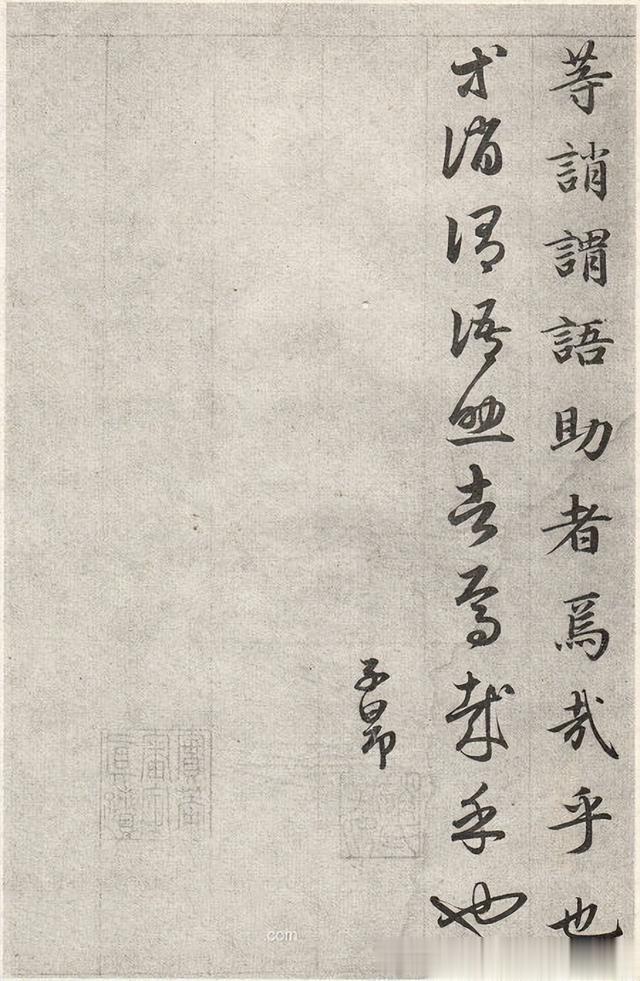 等誚謂語助者焉哉乎也
等誚謂語助者焉哉乎也
子昂
com